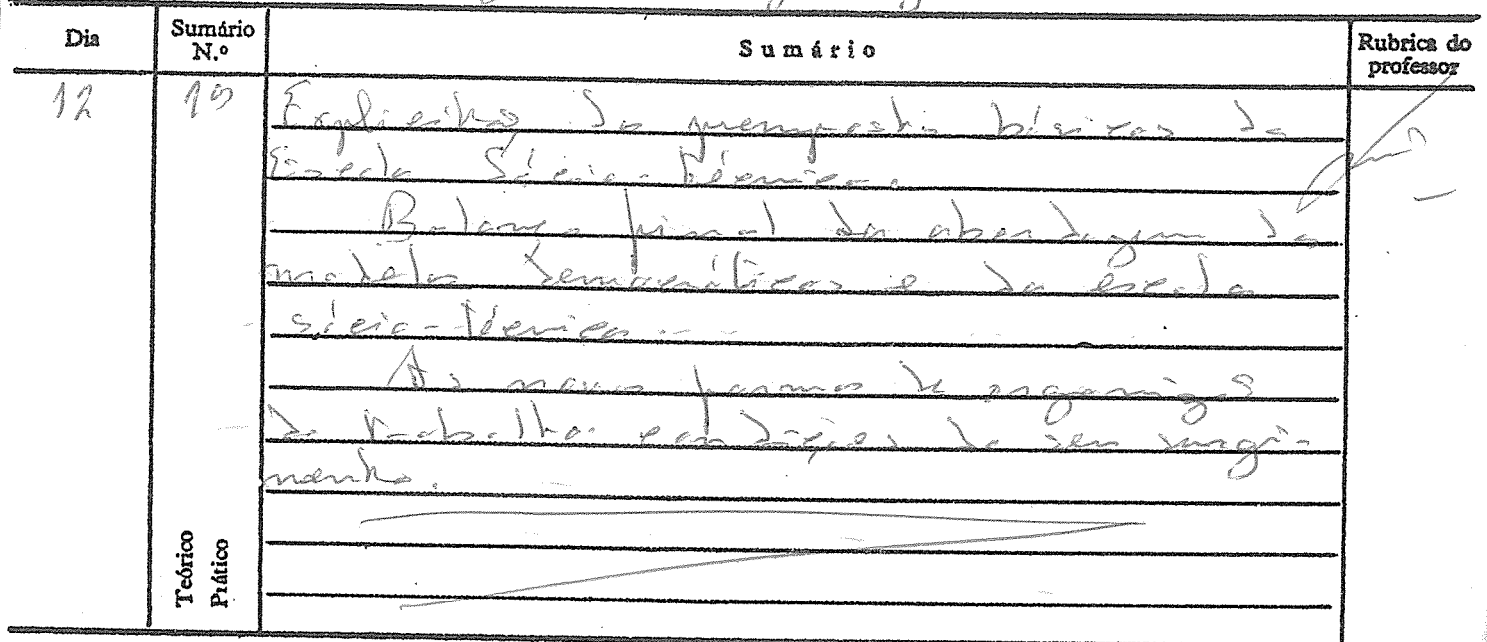 Dia Sumário N.º Sumário Rubrica do professor
12 19 Explicitação do pressupostos básicos da
Escola Sócio-Técnica.
Balanço final da abordagem dos
modelos democráticos e da escola
sócio-técnica.
As novas formas de organização
do trabalho: condições do seu surgi-
mento.
Teórico
Prático